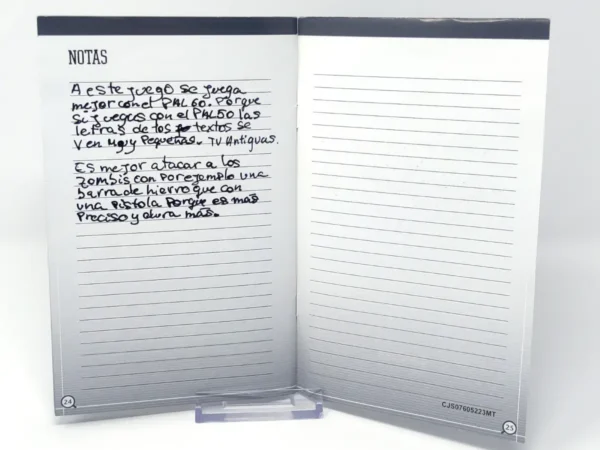 NOTAS
A este juego se juega
mejor con el PAL 60. Porque
si juegas con el PAL50 las
letras de los textos se
ven muy pequeñas. TV Antiguas.
Es mejor atacar a los
zombis con por ejemplo una
barra de hierro que con
una pistola porque es mas
preciso y dura más.
24
CJS07605223MT
25